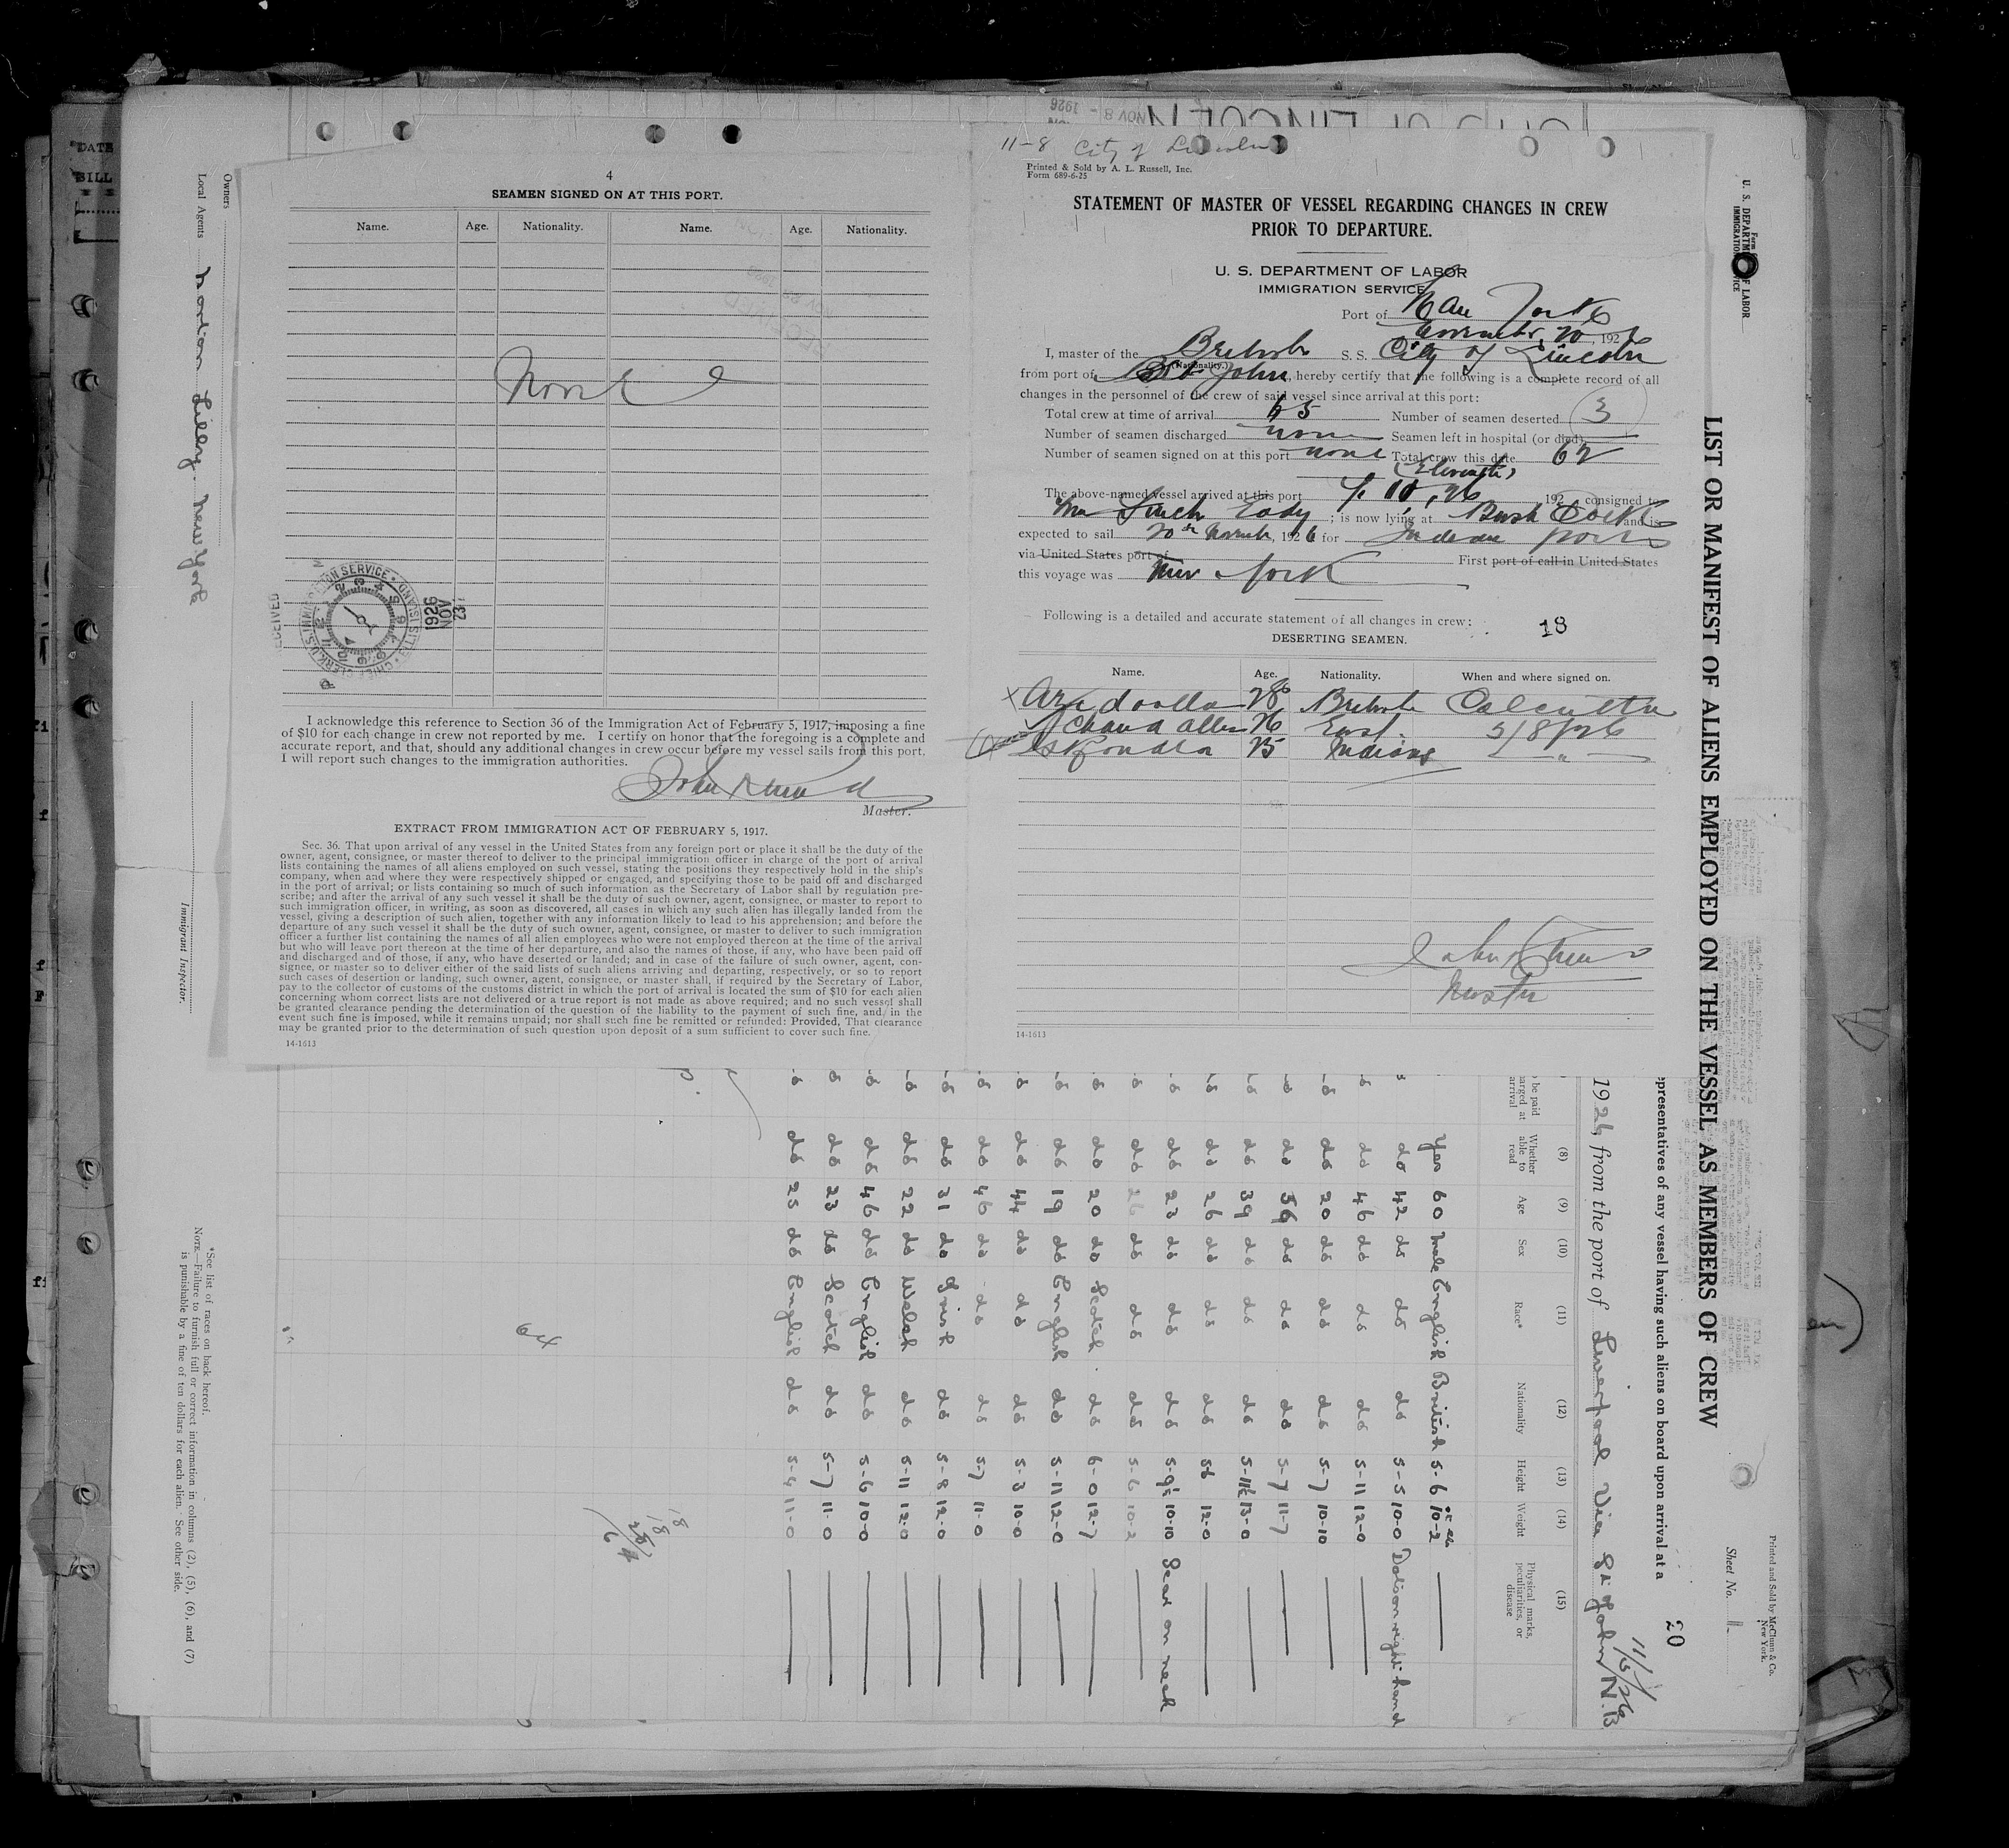 4
SEAMEN SIGNED ON AT THIS PORT.
Name. Age. Nationality. Name. Age. Nationality.
None
RECEIVED
1926 NOV 23
I acknowledge this reference to Section 36 of the Immigration Act of February 5, 1917, imposing a fine
of $10 for each change in crew not reported by me. I certify on honor that the foregoing is a complete and
accurate report, and that, should any additional changes in crew occur before my vessel sails from this port,
I will report such changes to the immigration authorities.
John
Master.
EXTRACT FROM IMMIGRATION ACT OF FEBRUARY 5, 1917.
Sec. 36. That upon arrival of any vessel in the United States from any foreign port or place it shall be the duty of the
owner, agent, consignee, or master thereof to deliver to the principal immigration officer in charge of the port of arrival
lists containing the names of all aliens employed on such vessel, stating the positions they respectively hold in the ship's
company, when and where they were respectively shipped or engaged, and specifying those to be paid off and discharged
in the port of arrival; or lists containing so much of such information as the Secretary of Labor shall by regulation pre-
scribe; and after the arrival of any such vessel it shall be the duty of such owner, agent, consignee, or master to report to
such immigration officer, in writing, as soon as discovered, all cases in which any such alien has illegally landed from the
vessel, giving a description of such alien, together with any information likely to lead to his apprehension; and before the
departure of any such vessel it shall be the duty of such owner, agent, consignee, or master to deliver to such immigration
officer a further list containing the names of all alien employees who were not employed thereon at the time of the arrival
but who will leave port thereon at the time of her departure, and also the names of those, if any, who have been paid off
and discharged and of those, if any, who have deserted or landed; and in case of the failure of such owner, agent, con-
signee, or master so to deliver either of the said lists of such aliens arriving and departing, respectively, or so to report
such cases of desertion or landing, such owner, agent, consignee, or master shall, if required by the Secretary of Labor,
pay to the collector of customs of the customs district in which the port of arrival is located the sum of $10 for each alien
concerning whom correct lists are not delivered or a true report is not made as above required; and no such vessel shall
be granted clearance pending the determination of the question of the liability to the payment of such fine, and in the
event such fine is imposed, while it remains unpaid; nor shall such fine be remitted or refunded: Provided, That clearance
may be granted prior to the determination of such question upon deposit of a sum sufficient to cover such fine.
14-1613
11-8 City of Lincoln
Printed & Sold by A. L. Russell, Inc.
Form 689-6-25
STATEMENT OF MASTER OF VESSEL REGARDING CHANGES IN CREW
PRIOR TO DEPARTURE.
U. S. DEPARTMENT OF LABOR
IMMIGRATION SERVICE
Port of New York
November 20, 1926
I, master of the British S. S. City of Lincoln
(Nationality.)
from port of St John, hereby certify that the following is a complete record of all
changes in the personnel of the crew of said vessel since arrival at this port:
Total crew at time of arrival 65 Number of seamen deserted 3
Number of seamen discharged none Seamen left in hospital (or died)
Number of seamen signed on at this port none Total crew this date 62
The above-named vessel arrived at this port 192 consigned to
; is now lying at Bush Docks and is
expected to sail 20th November, 1926 for Indian ports
via United States port of First port of call in United States
this voyage was New York
Following is a detailed and accurate statement of all changes in crew:
18
DESERTING SEAMEN.
Name. Age. Nationality. When and where signed on.
28 British Calcutta
26 East 2/8/26
25 Indians "
John
Master
14-1613
Owners
Local Agents Norton Lilly. New York
Immigrant Inspector.
*See list of races on back hereof.
NOTE.—Failure to furnish full or correct information in columns (2), (5), (6), and (7)
is punishable by a fine of ten dollars for each alien. See other side.
U. S. DEPARTMENT OF LABOR
IMMIGRATION SERVICE
LIST OR MANIFEST OF ALIENS EMPLOYED ON THE VESSEL AS MEMBERS OF CREW
Sheet No. 1
Printed and Sold by McClunn & Co.
New York.
representatives of any vessel having such aliens on board upon arrival at a
1926, from the port of Liverpool Via St John N.B
11/5/26
(8) Whether able to read (9) Age (10) Sex (11) Race* (12) Nationality (13) Height (14) Weight (15) Physical marks, peculiarities, or disease
Yes 60 Male English British 5-6 10-2
do 42 do do do 5-5 10-0 right hand
do 46 do do do 5-11 12-0
do 20 do do do 5-7 10-10
do 56 do do do 5-7 11-7
do 39 do do do 5-11½ 13-0
do 26 do do do 5-6 12-0
do 23 do do do 5-9½ 10-10 Scar on neck
do 26 do do do 5-6 10-2
do 20 do Scotch do 6-0 12-7
do 19 do English do 5-11 12-0
do 44 do do do 5-3 10-0
do 46 do do do 5-7 11-0
do 31 do Irish do 5-8 12-0
do 22 do Welsh do 5-11 12-0
do 46 do English do 5-6 10-0
do 23 do Scotch do 5-7 11-0
do 25 do English do 5-4 11-0
64
18
18
28
64
DATE
BILL